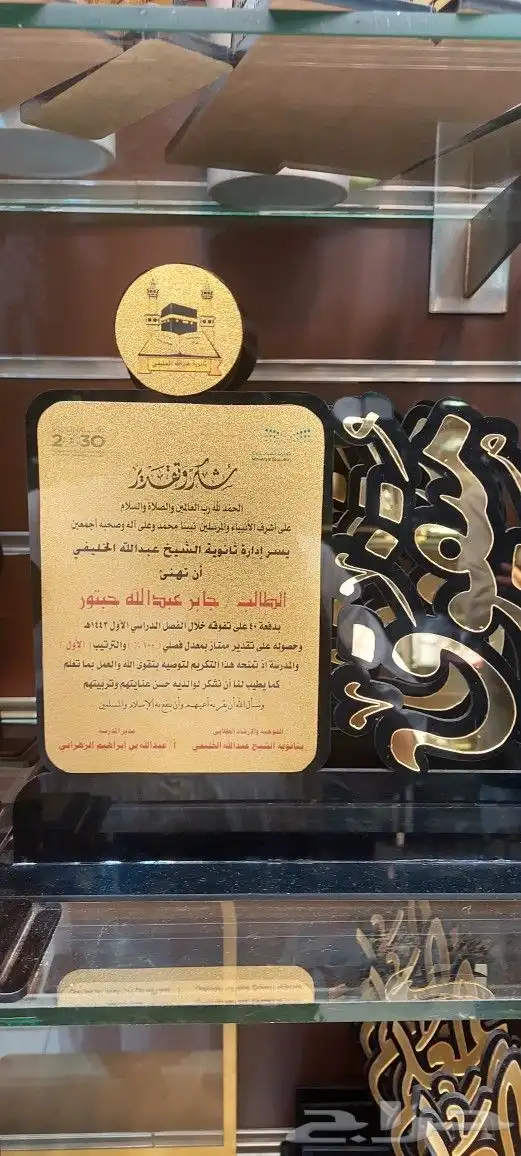 ثانوية عبدالله الخليفي
2030
شكر وتقدير
الحمد لله رب العالمين والصلاة والسلام
على أشرف الأنبياء والمرسلين نبينا محمد وعلى آله وصحبه أجمعين
يسر إدارة ثانوية الشيخ عبدالله الخليفي
أن تهنئ
الطالب - جابر عبدالله حبتور
بدفعة ٤٠ على تفوقه خلال الفصل الدراسي الأول ١٤٤٣هـ
وحصوله على تقدير ممتاز بمعدل فصلي (١٠٠٪) والترتيب (الأول)
والمدرسة إذ تمنحه هذا التكريم لتوصيه بتقوى الله والعمل بما تعلم
كما يطيب لنا أن نشكر لوالديه حسن عنايتهم وتربيتهم
ونسأل الله أن يقر به أعينهم وأن ينفع به الإسلام والمسلمين
التوجيه والإرشاد الطلابي
بثانوية الشيخ عبدالله الخليفي
مدير المدرسة
أ/ عبدالله بن ابراهيم الزهراني
حراج